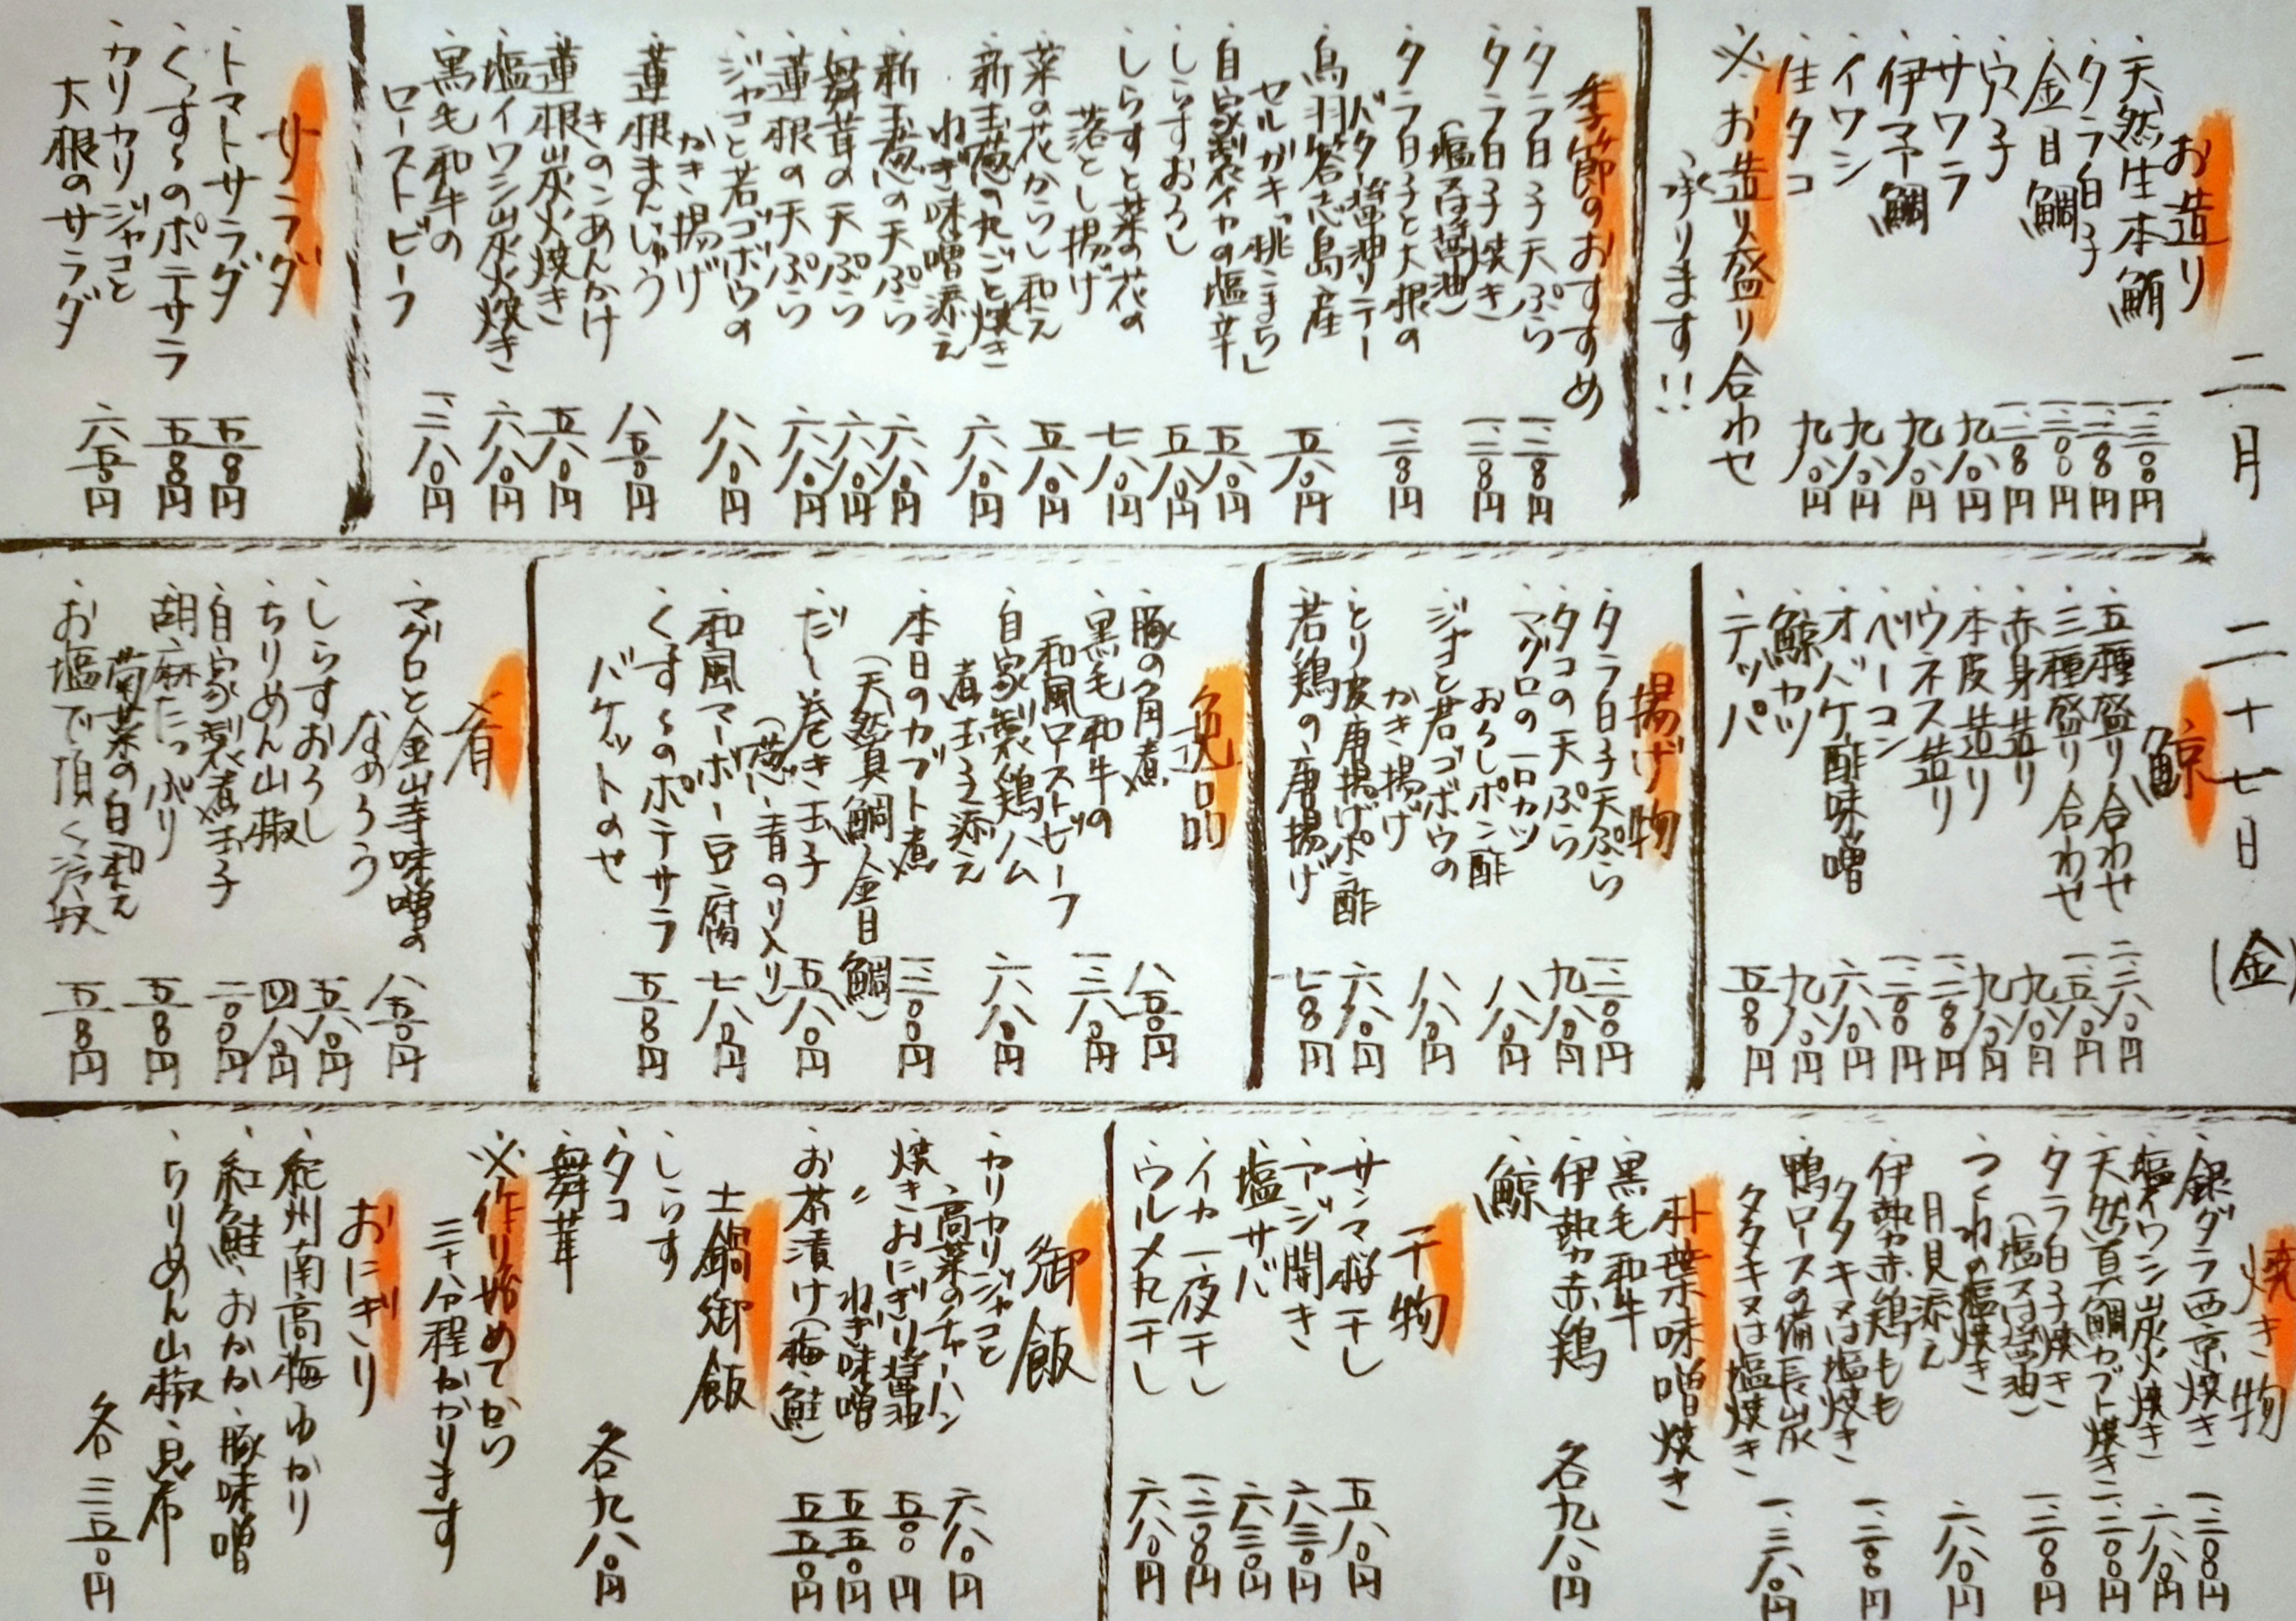 二月二十七日(金)
お造り
・天然生本鮪 一、三〇〇円
・タラ白子 一、二〇〇円
・金目鯛 一、二〇〇円
・穴子 一、二〇〇円
・サワラ 九八〇円
・伊予鯛 九八〇円
・イワシ 九八〇円
・住タコ 九八〇円
※お造り盛り合わせ
承ります!!
季節のおすすめ
・タラ白子天ぷら 一、二〇〇円
・タラ白子焼き 一、二〇〇円
(塩又は醤油)
・タラ白子と大根の
バター醤油ソテー 一、二〇〇円
・鳥羽答志島産
セルガキ「桃こまち」 五八〇円
・自家製イカの塩辛 五八〇円
・しらすおろし 五八〇円
・しらすと菜の花の
落とし揚げ 七八〇円
・菜の花からし和え 五八〇円
・新玉葱の丸ごと焼き
ねぎ味噌添え 六八〇円
・新玉葱の天ぷら 六八〇円
・舞茸の天ぷら 六八〇円
・蓮根の天ぷら 六八〇円
・ジャコと若ゴボウの
かき揚げ 八八〇円
・蓮根まんじゅう
きのこあんかけ 八五〇円
・蓮根炭火焼き 五八〇円
・塩イワシ炭火焼き 六八〇円
・黒毛和牛の
ローストビーフ 一、三八〇円
サラダ
・トマトサラダ 五五〇円
・くっすぅのポテサラ 五五〇円
・カリカリジャコと
大根のサラダ 六五〇円
鯨
・五種盛り合わせ 二、三八〇円
・三種盛り合わせ 一、五八〇円
・赤身造り 九八〇円
・本皮造り 九八〇円
・ウネス造り 一、二〇〇円
・ベーコン 一、二〇〇円
・オバケ酢味噌 六八〇円
・鯨カツ 九八〇円
・テッパ 五五〇円
揚げ物
・タラ白子天ぷら 一、二〇〇円
・タコの天ぷら 九八〇円
・マグロの一口カツ
おろしポン酢 八八〇円
・ジャコと若ゴボウの
かき揚げ 八八〇円
・とり皮唐揚げポン酢 六八〇円
・若鶏の唐揚げ 七八〇円
逸品
・豚の角煮 八五〇円
・黒毛和牛の
和風ローストビーフ 一、三八〇円
・自家製鶏ハム
煮玉子添え 六八〇円
・本日のカブト煮 一、二〇〇円
(天然真鯛、金目鯛)
・だし巻き玉子 五八〇円
(葱、青のり入り)
・和風マーボー豆腐 七八〇円
・くすぅのポテサラ
バケットのせ 五五〇円
肴
・マグロと金山寺味噌の
なめろう 八五〇円
・しらすおろし 五八〇円
・ちりめん山椒 四八〇円
・自家製煮玉子 二〇〇円
・胡麻たっぷり
菊菜の白和え 五五〇円
・お塩で頂く冷奴 五五〇円
焼き物
・銀ダラ西京焼き 一、二〇〇円
・塩イワシ炭火焼き 六八〇円
・天然真鯛カブト焼き 一、二〇〇円
・タラ白子焼き
(塩又は醤油) 一、二〇〇円
・つくねの塩焼き
月見添え 六八〇円
・伊勢赤鶏もも
タタキ又は塩焼き 一、二〇〇円
・鴨ロースの備長炭
タタキ又は塩焼き 一、三八〇円
朴葉味噌焼き
・黒毛和牛
・伊勢赤鶏
・鯨
各九八〇円
干物
・サンマ桜干し 五八〇円
・アジ開き 六三〇円
・塩サバ 六三〇円
・イカ一夜干し 一、二〇〇円
・ウルメ丸干し 六八〇円
御飯
・カリカリジャコと
高菜のチャーハン 六八〇円
・焼きおにぎり醤油 五〇〇円
・〃 ねぎ味噌 五五〇円
・お茶漬け(梅・鮭) 五五〇円
土鍋御飯
・しらす
・タコ
・舞茸
各九八〇円
※作り始めてから
三十分程かかります
おにぎり
・紀州南高梅・ゆかり
・紅鮭・おかか・豚味噌
・ちりめん山椒・昆布
各三五〇円